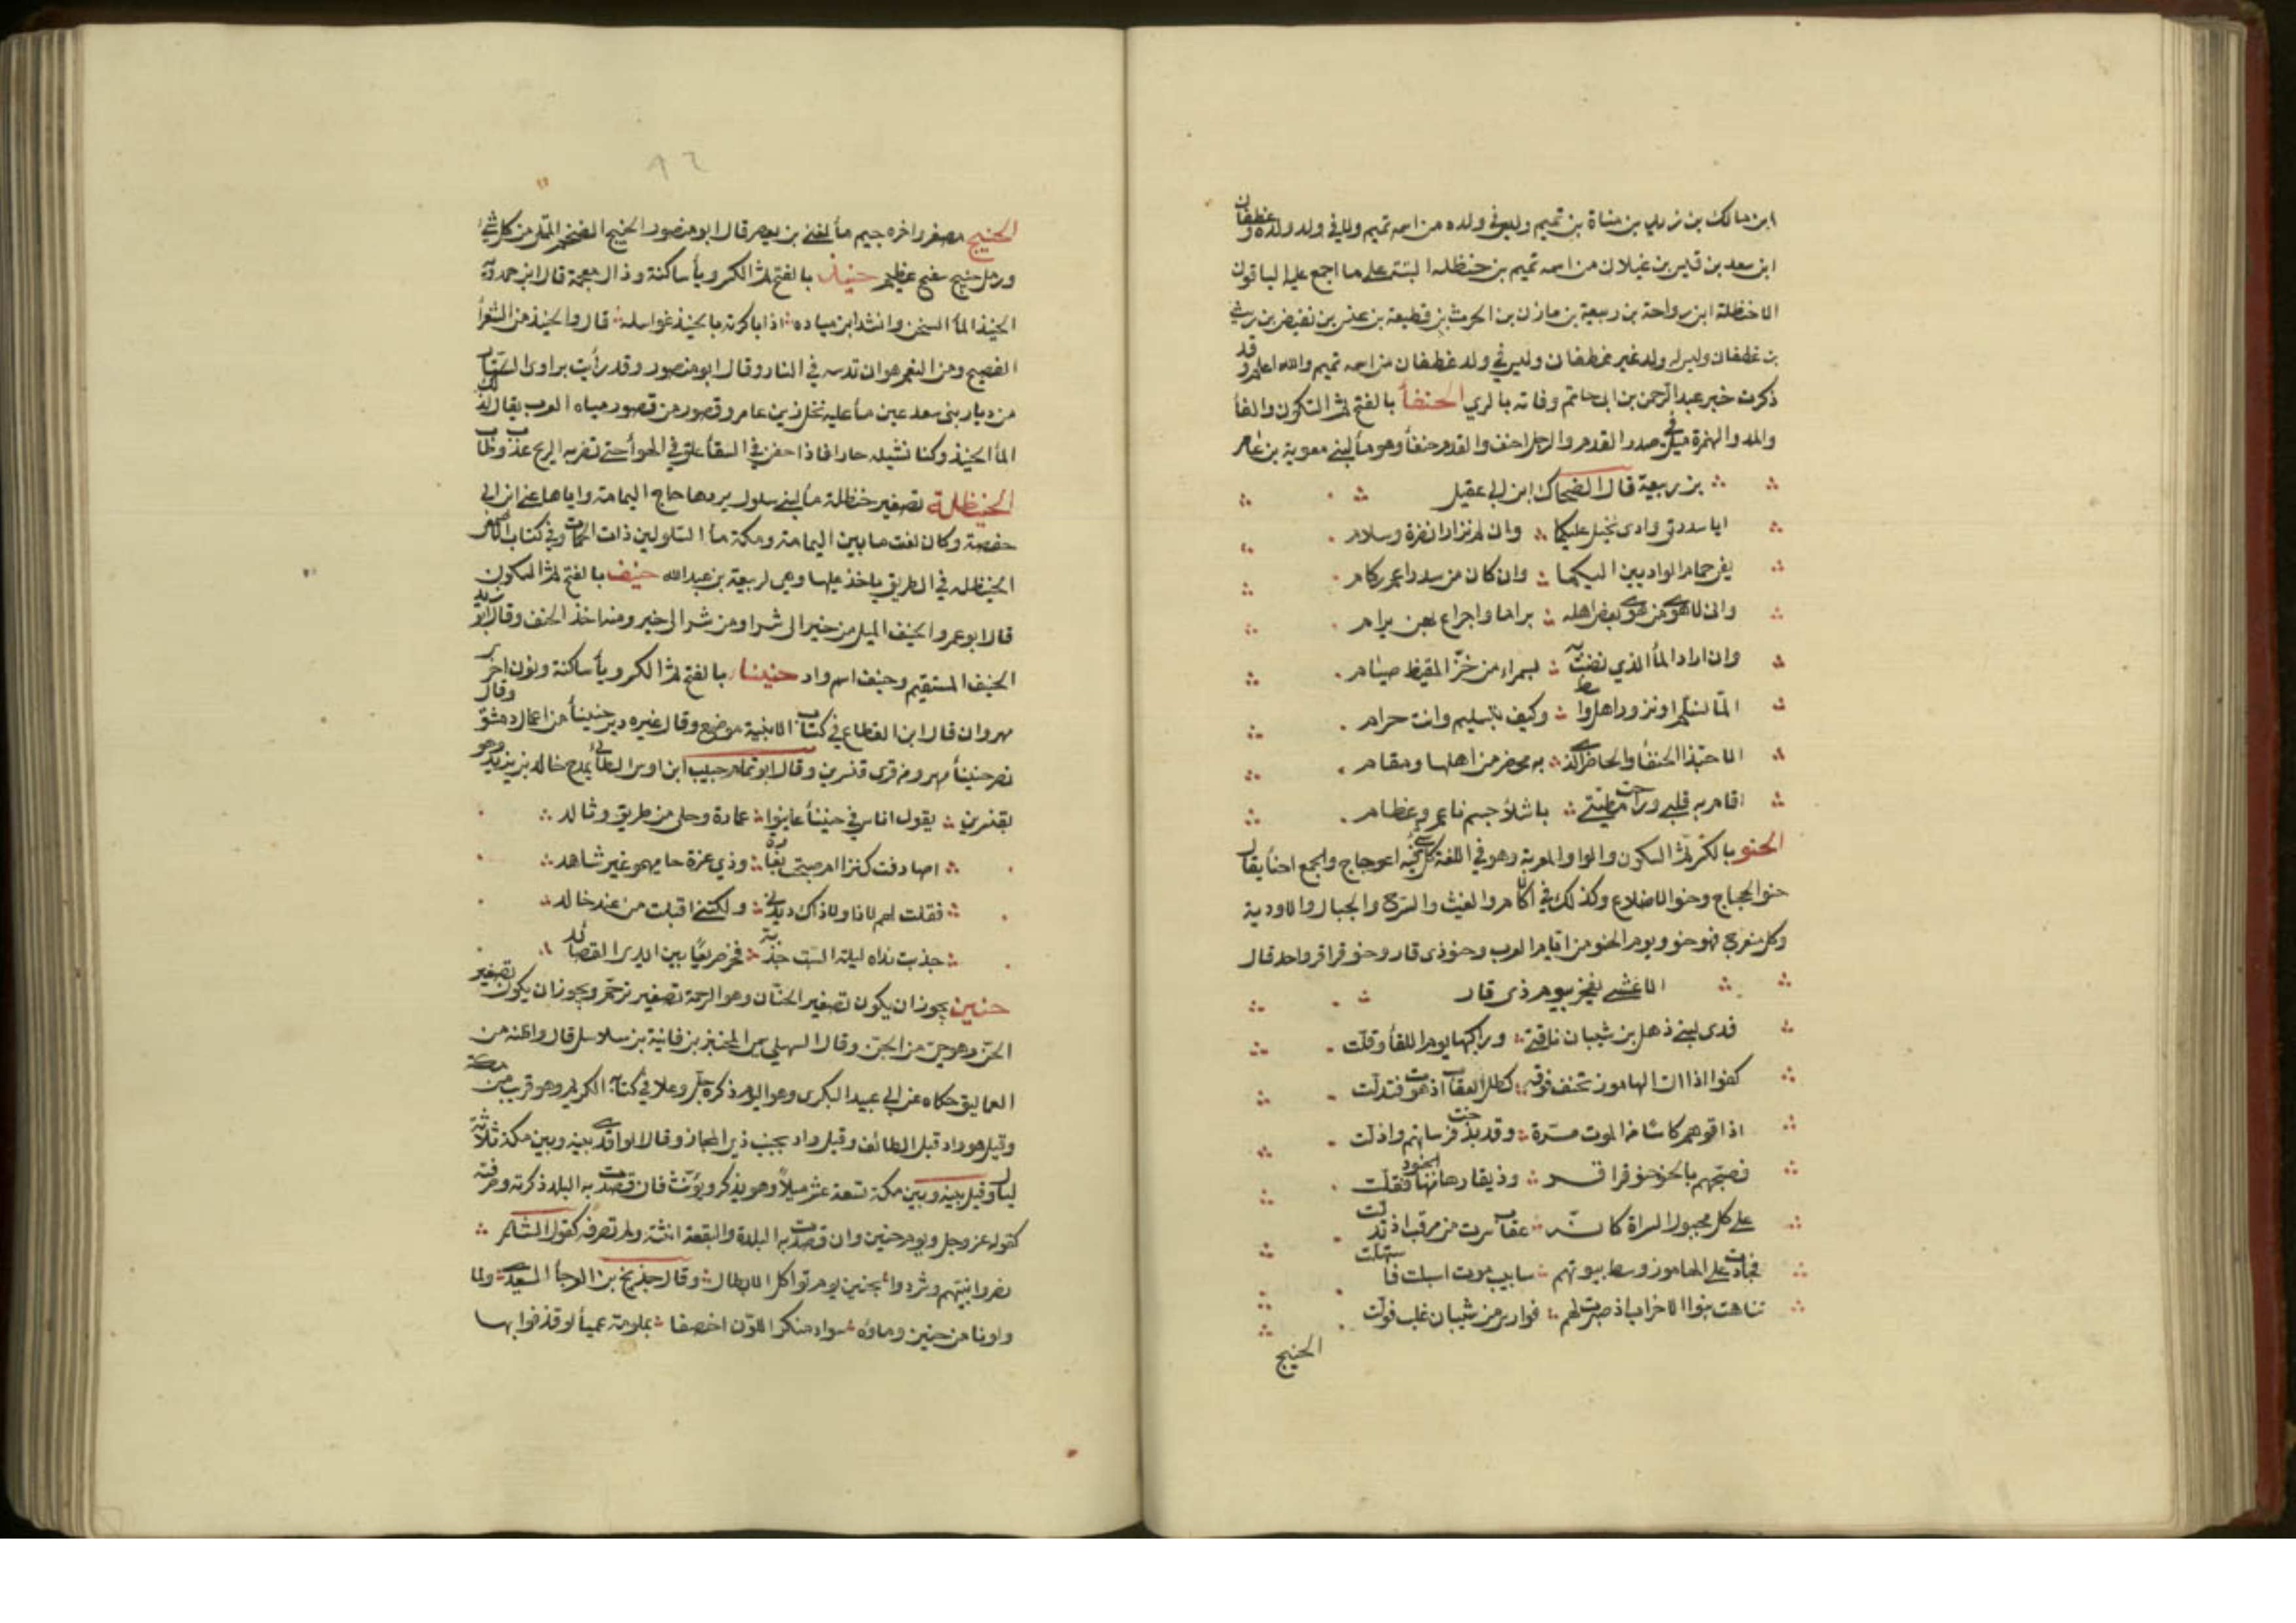 ابن مالك بن زيد بن مناة بن تميم وليس في ولده من اسمه تميم ولا في ولد ولده وغطفان
ابن سعد بن قيس بن عيلان من اسمه تميم بن حنظلة البتة على ما اجمع عليه النسابون
الا حنظلة ابن رواحة بن ربيعة بن مازن بن الحرث بن قطيعة بن عبس بن بغيض بن ريث
بن غطفان وليس له ولد غير غطفان وليس في ولد غطفان من اسمه تميم والله اعلم وقد
ذكرت خبر عبد الرحمن بن ابى حاتم وفاته بالري الحنفأ بالفتح ثم السكون والفأ
والمد والهمزة ميل في صدر القدم والرجل احنف والقدم حنفأ وهو مأ لبني معوية بن عامر
بن ربيعة قال الضحاك ابن ابي عقيل
ايا سدرتي وادى نخيل عليكما وان لم تزارا نضرة وسلام
يغن حمام الواديين اليكما وان كان من سدر اعم ركام
وانى لاهوى من هوى بعض اهله براما واجراع بهن برام
الما تسلم او نزور ارض واسط وكيف بتسليم وانت حرام
الا حبذا الحنفأ والحاضر الذي به محضر من اهلها ومقام
اقام به قلبي وراحت مطيتي باشلاء جسم ناعم وعظام
الحنو بالكسر ثم السكون والواو المعربة وهو في اللغة كل شي فيه اعوجاج والجمع احنأ يقال
حنو الحجاج وحنو الاضلاع وكذلك في الاكام والغيث والسرج والجبال والاودية
وكل منعرج فهو حنو ويوم الحنو من ايام العرب وحنو ذى قار وحنو قراقر واحد قال
الاعشى يفخر بيوم ذى قار
فدى لبني ذهل بن شيبان ناقتي وراكبها يوم اللقأ وقلت
كفوا اذ اتى الهاموز تخفق فوقه كظل العقاب اذ هوت فتدلت
اذاقوهم كاسا من الموت مرة وقد بذخت فرسانهم واذلت
فصبحهم بالحنو حنو قراقر وذي قارها منها الجنود ففلت
على كل محبوك السراة كانه عقاب سرت من مرقب اذ تدلت
فجادت على الهاموز وسط بيوتهم شآبيب موت اسبلت فاستهلت
تناهت بنوا الاحزاب اذ صبرت لهم فوارس من شيبان غلب فولت
الحنيج
٨٦
الحنيج مصغر واخره جيم مأ لغني بن يعصر قال ابو منصور الحنيج الضخم الممتلي من كل شي
ورمل حنيج منتفخ عظيم حنيذ بالفتح ثم الكسر ويأ ساكنة وذال معجمة قال ابن حمدويه
الحنيذ المأ السخن وانشد ابن مياده اذا باكرته بالحنيذ غواسله قال والحنيذ من الشوأ
النضيج ومن النعم هو ان تدسه في النار وقال ابو منصور وقد رأيت بوادى الستار
من ديار بنى سعد عين مأ عليه نخل زين عامر وقصور من قصور مياه العرب يقال لذلك
المأ الحنيذ وكنا نشيله حارا فاذا حقن في السقأ علق في الهوأ حتى تضربه الريح عذب وطاب
الحنيظلة تصغير حنظلة مأ لبني سلول يردها حاج اليمامة واياها عنى ابن ابى
حفصة وكان نعت ما بين اليمامة ومكة
الحنيظلة في الطريق ياخذ عليها وهي لربيعة بن عبد الله حنيف بالفتح ثم السكون
قال ابو عمرو الحنيف الميل من خير الى شر او من شر الى خير ومنه اخذ الحنف وقال ابو زيد
الحنيف المستقيم وحنيف اسم واد حنينا بالفتح ثم الكسر ويأ ساكنة ونون اخرى وقال
مهروان قال ابن القطاع في كتاب الابنية موضع وقال غيره دير حنينأ من اعمال دمشق
نصر حنينأ مهرو من قرى قنسرين وقال ابو تمام حبيب ابن اوس الطائي يمدح خالد بن يزيد وهو
بقنسرين يقول اناس في حنينأ عاينوا عمارة رحلى من طريف وتالد
اصادفت كنزا ام صبحت بغارة وذي غرة حاميهم غير شاهد
فقلت لهم لا ذا ولا ذاك ديدني ولكنني اقبلت من عند خالد
جذبت نداه ليلة السبت جذبة فخر صريعا بين ايدى القصائد
حنين يجوز ان يكون تصغير الحنان وهو الرحمة تصغير ترخيم ويجوز ان يكون تصغير
الحن وهو حي من الجن وقال السهيلي سمي بحنين بن قانية بن مهلاييل قال واظنه من
العماليق حكاه عن ابي عبيد البكرى وهو اليوم ذكره جل وعلا في كتابه الكريم وهو قريب من مكة
وقيل هو واد قبل الطائف وقيل واد بجنب ذي المجاز وقال الواقدي بينه وبين مكة ثلاثة
ليال وقيل بينه وبين مكة بضعة عشر ميلا وهو يذكر ويؤنث فان قصدت به البلد ذكرته وصرفته
كقوله عز وجل ويوم حنين وان قصدت به البلدة والبقعة انثته ولم تصرفه كقول الشاعر
نصروا نبيهم وشدوا ازره بحنين يوم تواكل الابطال وقال خديج بن العوجأ النصري ولما
دنونا من حنين ومائه سواد منكر اللون اخصفا بملومة عميأ لو قذفوا بها